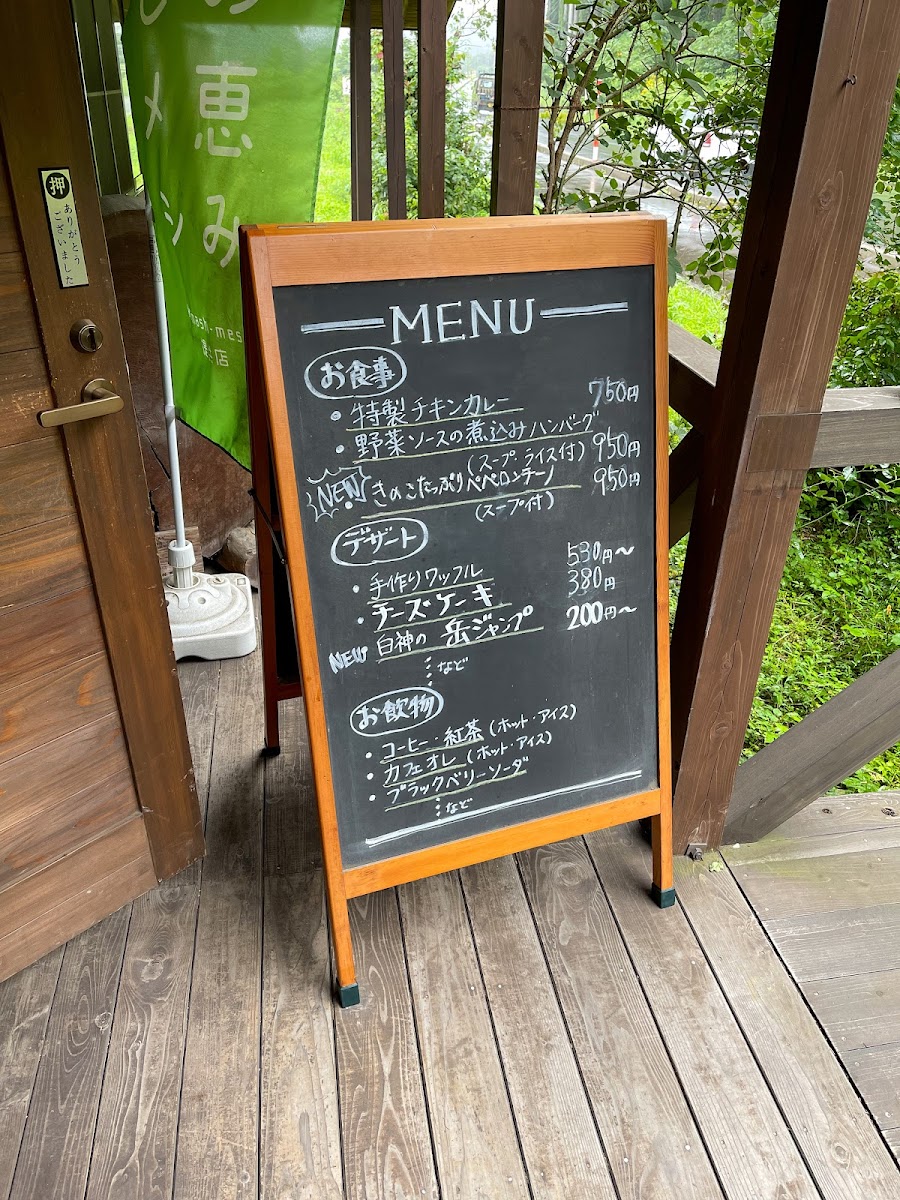 の恵み
メシ
押
ありがとう
ございました
MENU
お食事
・特製チキンカレー 750円
・野菜ソースの煮込みハンバーグ
(スープ、ライス付) 950円
NEW きのこたっぷりペペロンチーノ 950円
(スープ付)
デザート
・手作りワッフル 530円〜
・チーズケーキ 380円
NEW 白神の 岳ジャンプ 200円〜
など
お飲物
・コーヒー・紅茶 (ホット・アイス)
・カフェオレ (ホット・アイス)
・ブラックベリーソーダ
など